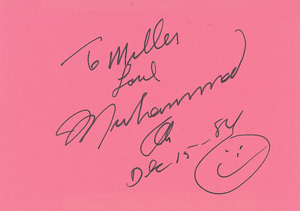 To Miller
Love
Muhammad
Ali
Dec 15-84